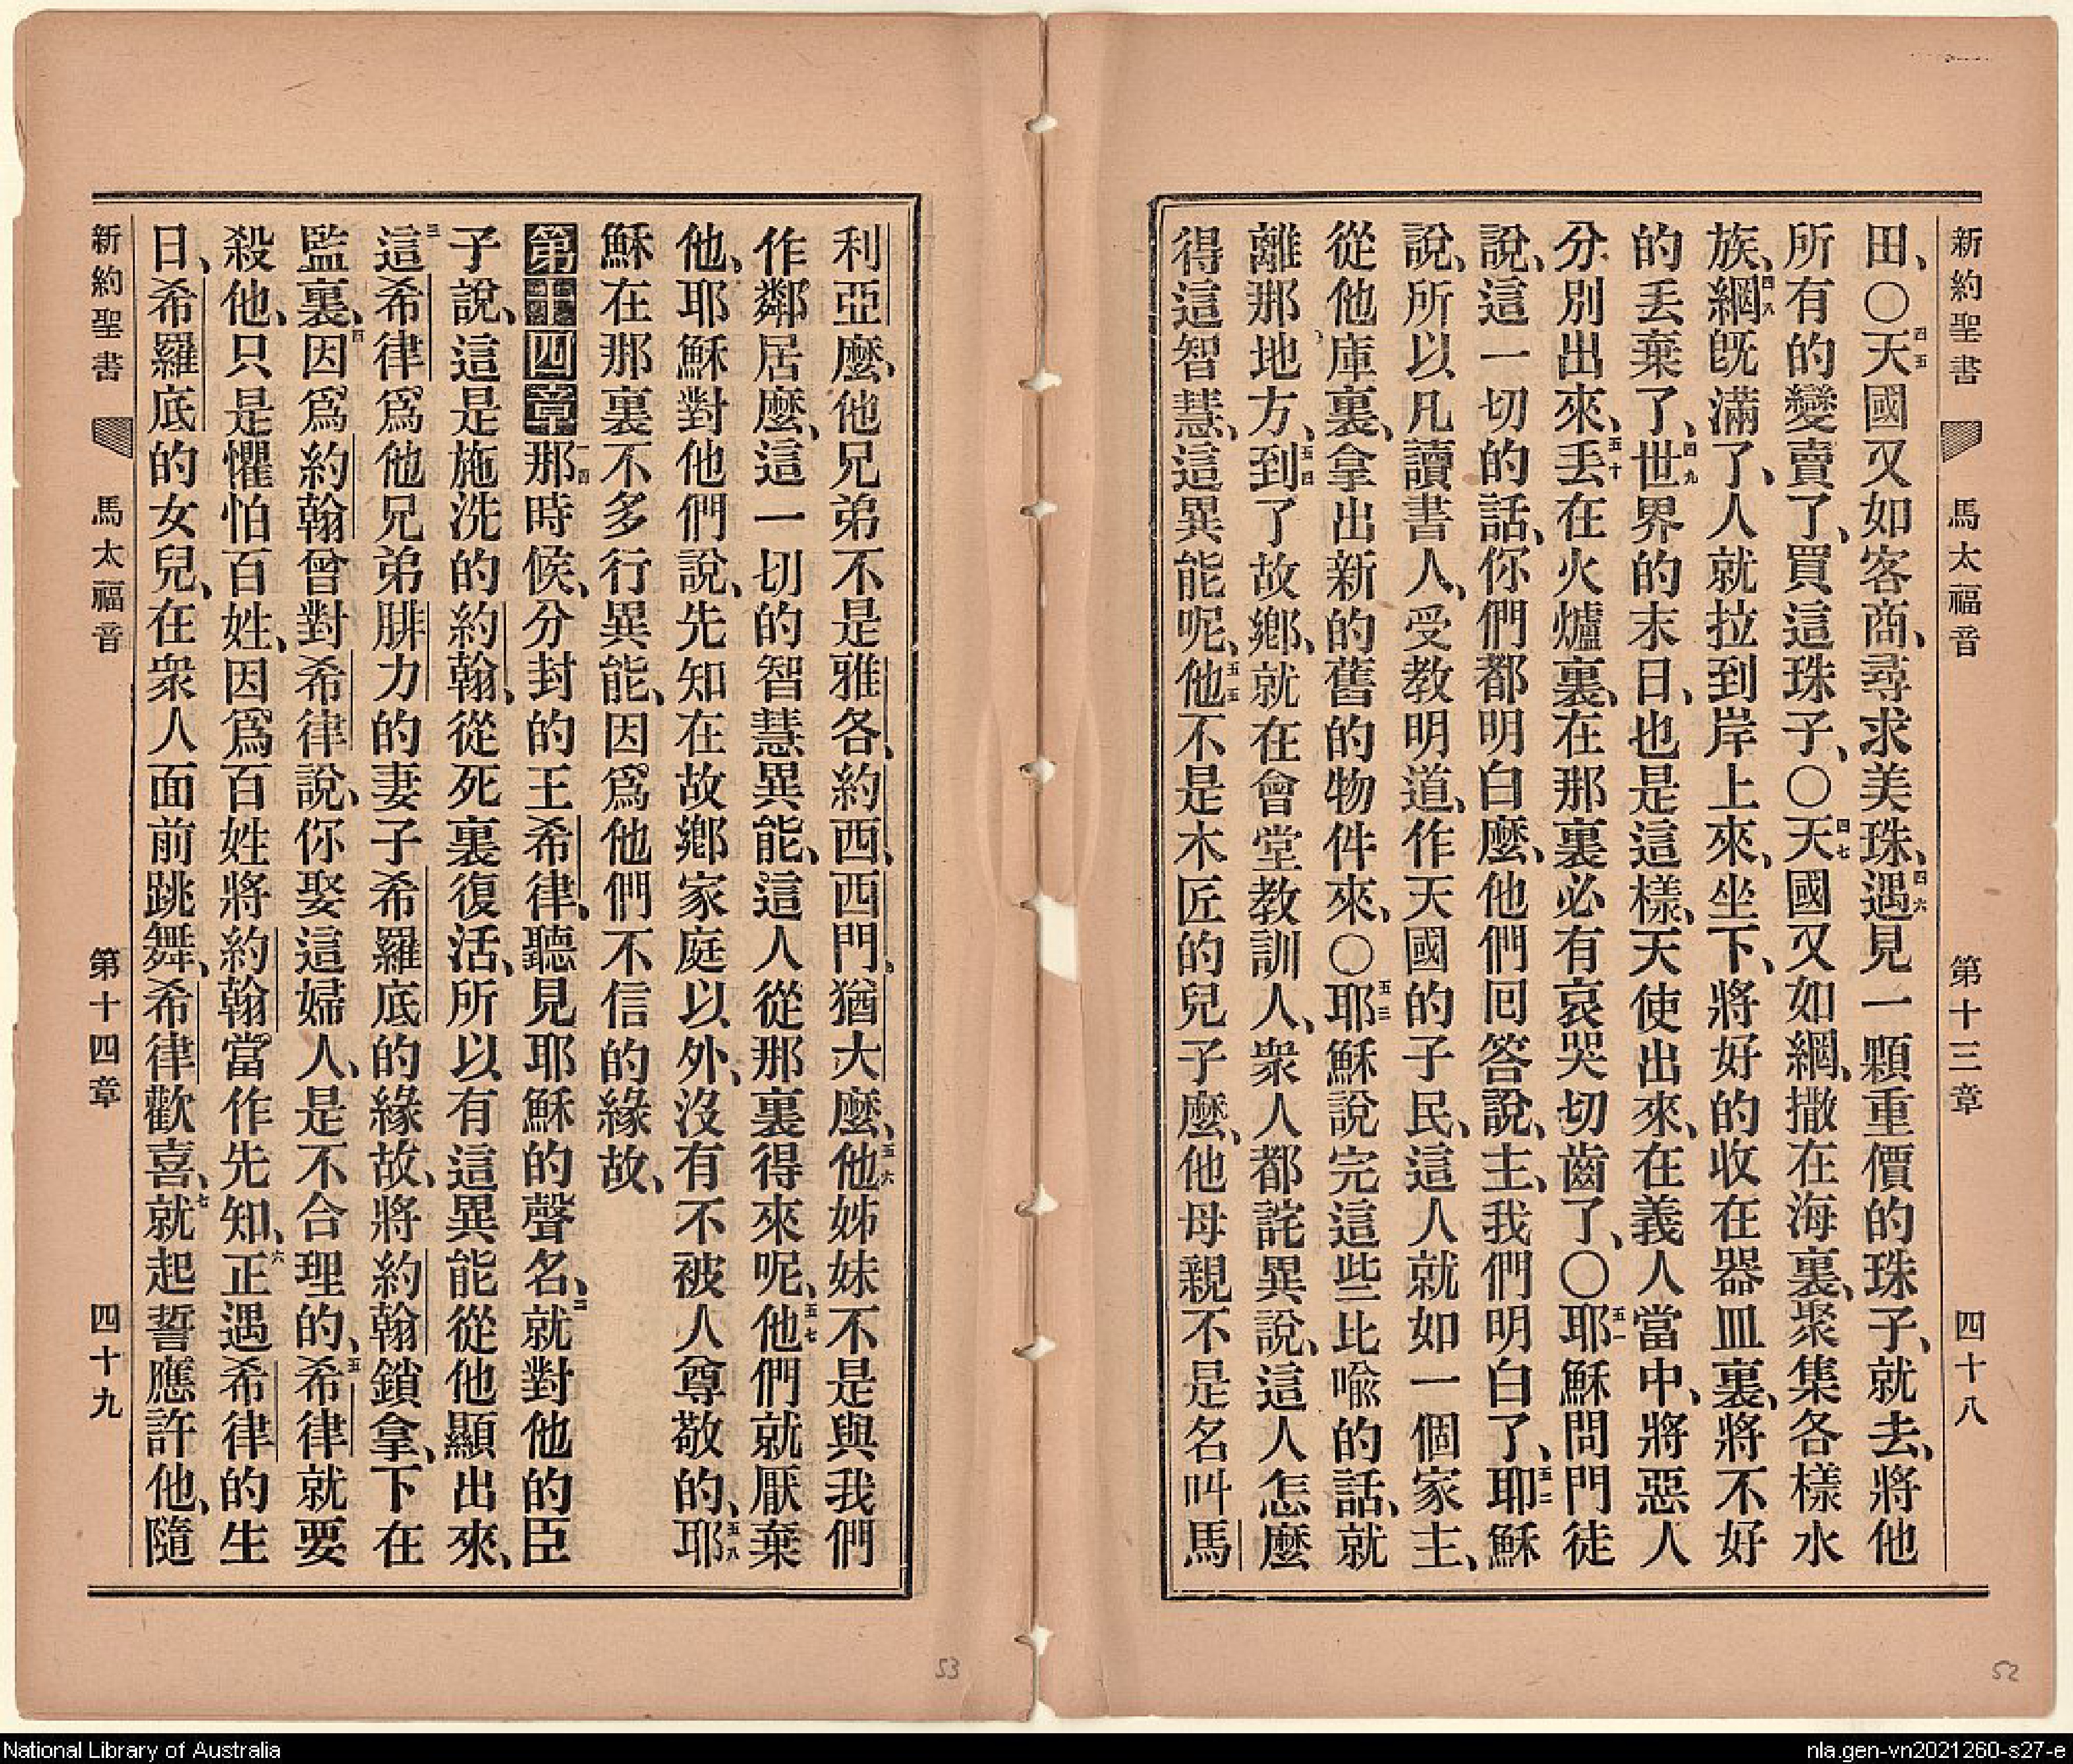 新約聖書 馬太福音 第十三章 四十八
田、〇四五天國又如客商、尋求美珠、四六遇見一顆重價的珠子、就去、將他
所有的變賣了、買這珠子、〇四七天國又如網、撒在海裏、聚集各樣水
族、四八網旣滿了、人就拉到岸上來、坐下、將好的收在器皿裏、將不好
的丟棄了、四九世界的末日、也是這樣、天使出來、在義人當中、將惡人
分別出來、五十丟在火爐裏、在那裏必有哀哭切齒了、〇五一耶穌問門徒
說、這一切的話、你們都明白麼、他們回答說、主、我們明白了、五二耶穌
說、所以凡讀書人、受教明道、作天國的子民、這人就如一個家主、
從他庫裏、拿出新的舊的物件來、〇五三耶穌說完這些比喩的話、就
離那地方、五四到了故鄉、就在會堂教訓人、衆人都詫異說、這人怎麼
得這智慧、這異能呢、五五他不是木匠的兒子麼、他母親不是名叫馬
利亞麼、他兄弟不是雅各、約西、西門、猶大麼、五六他姊妹不是與我們
作鄰居麼、這一切的智慧異能、這人從那裏得來呢、五七他們就厭棄
他、耶穌對他們說、先知在故鄉家庭以外、沒有不被人尊敬的、五八耶
穌在那裏不多行異能、因爲他們不信的緣故、
第十四章一四那時候、分封的王希律、聽見耶穌的聲名、二就對他的臣
子說、這是施洗的約翰、從死裏復活、所以有這異能從他顯出來、
三這希律爲他兄弟腓力的妻子希羅底的緣故、將約翰鎖拿、下在
監裏、四因爲約翰曾對希律說、你娶這婦人、是不合理的、五希律就要
殺他、只是懼怕百姓、因爲百姓將約翰當作先知、六正遇希律的生
日、希羅底的女兒、在衆人面前跳舞、希律歡喜、七就起誓應許他、隨
新約聖書 馬太福音 第十四章 四十九
53
52
National Library of Australia
nla.gen-vn2021260-s27-e